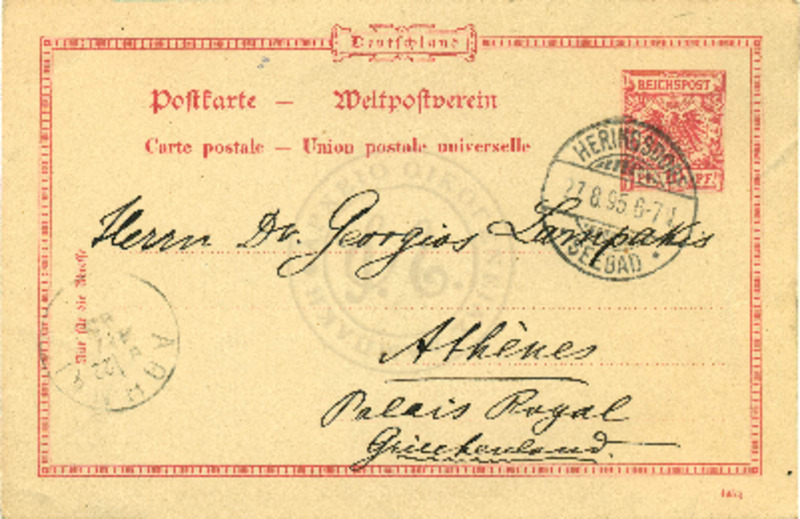 Deutschland
Postkarte — Weltpostverein
Carte postale — Union postale universelle
REICHSPOST
HERINGSDORF
27.8.95 6-7 N
SEEBAD
Herrn Dr. Georgios Lampakis
Athènes
Palais Royal
Griechenland.
Nur für die Adresse